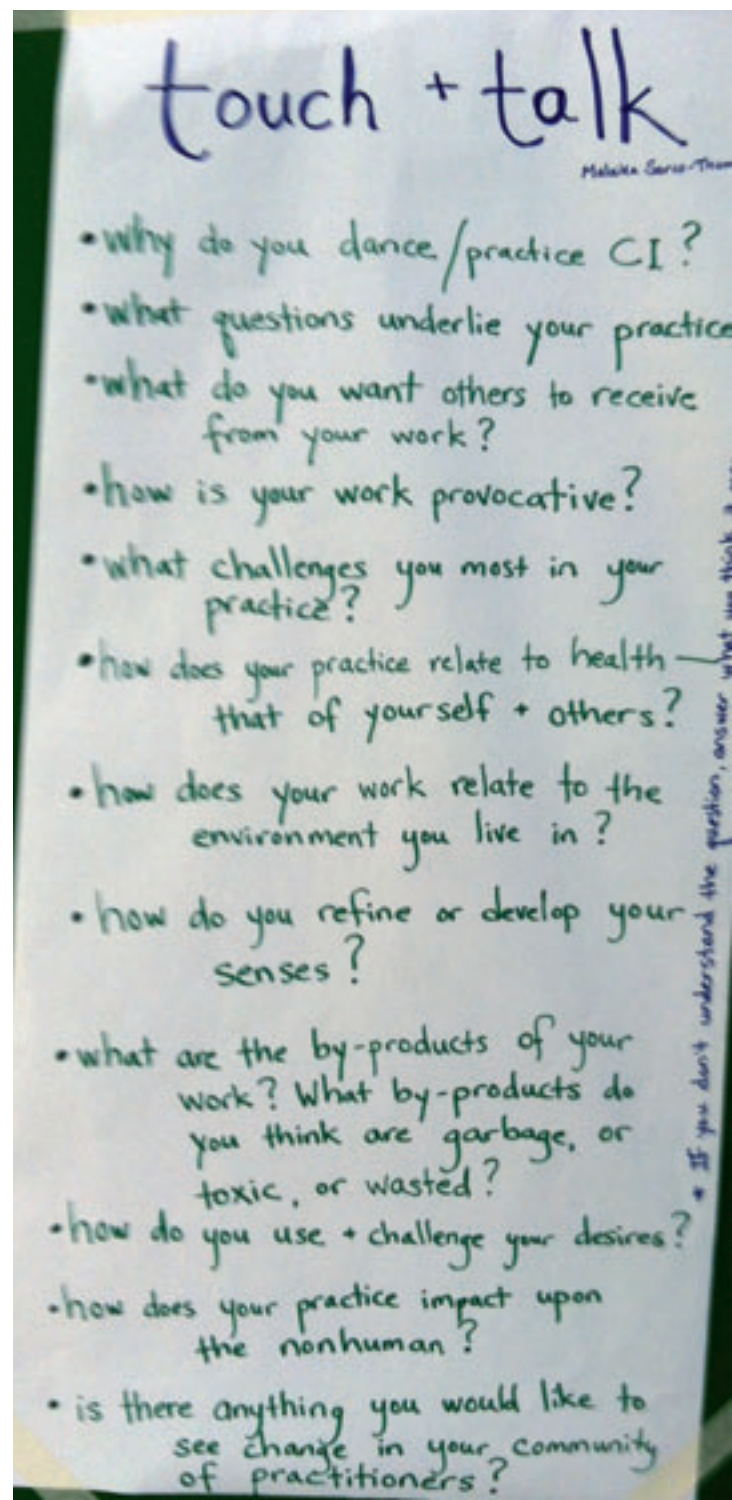 touch + talk
Malaika Sarco-Thom
• why do you dance/practice CI?
• what questions underlie your practice
• what do you want others to receive
from your work?
• how is your work provocative?
• what challenges you most in your
practice?
• how does your practice relate to health —
that of yourself + others?
• how does your work relate to the
environment you live in?
• how do you refine or develop your
senses?
• what are the by-products of your
work? What by-products do
you think are garbage, or
toxic, or wasted?
• how do you use + challenge your desires?
• how does your practice impact upon
the nonhuman?
• is there anything you would like to
see change in your community
of practitioners?
* If you don't understand the question, answer what you think it